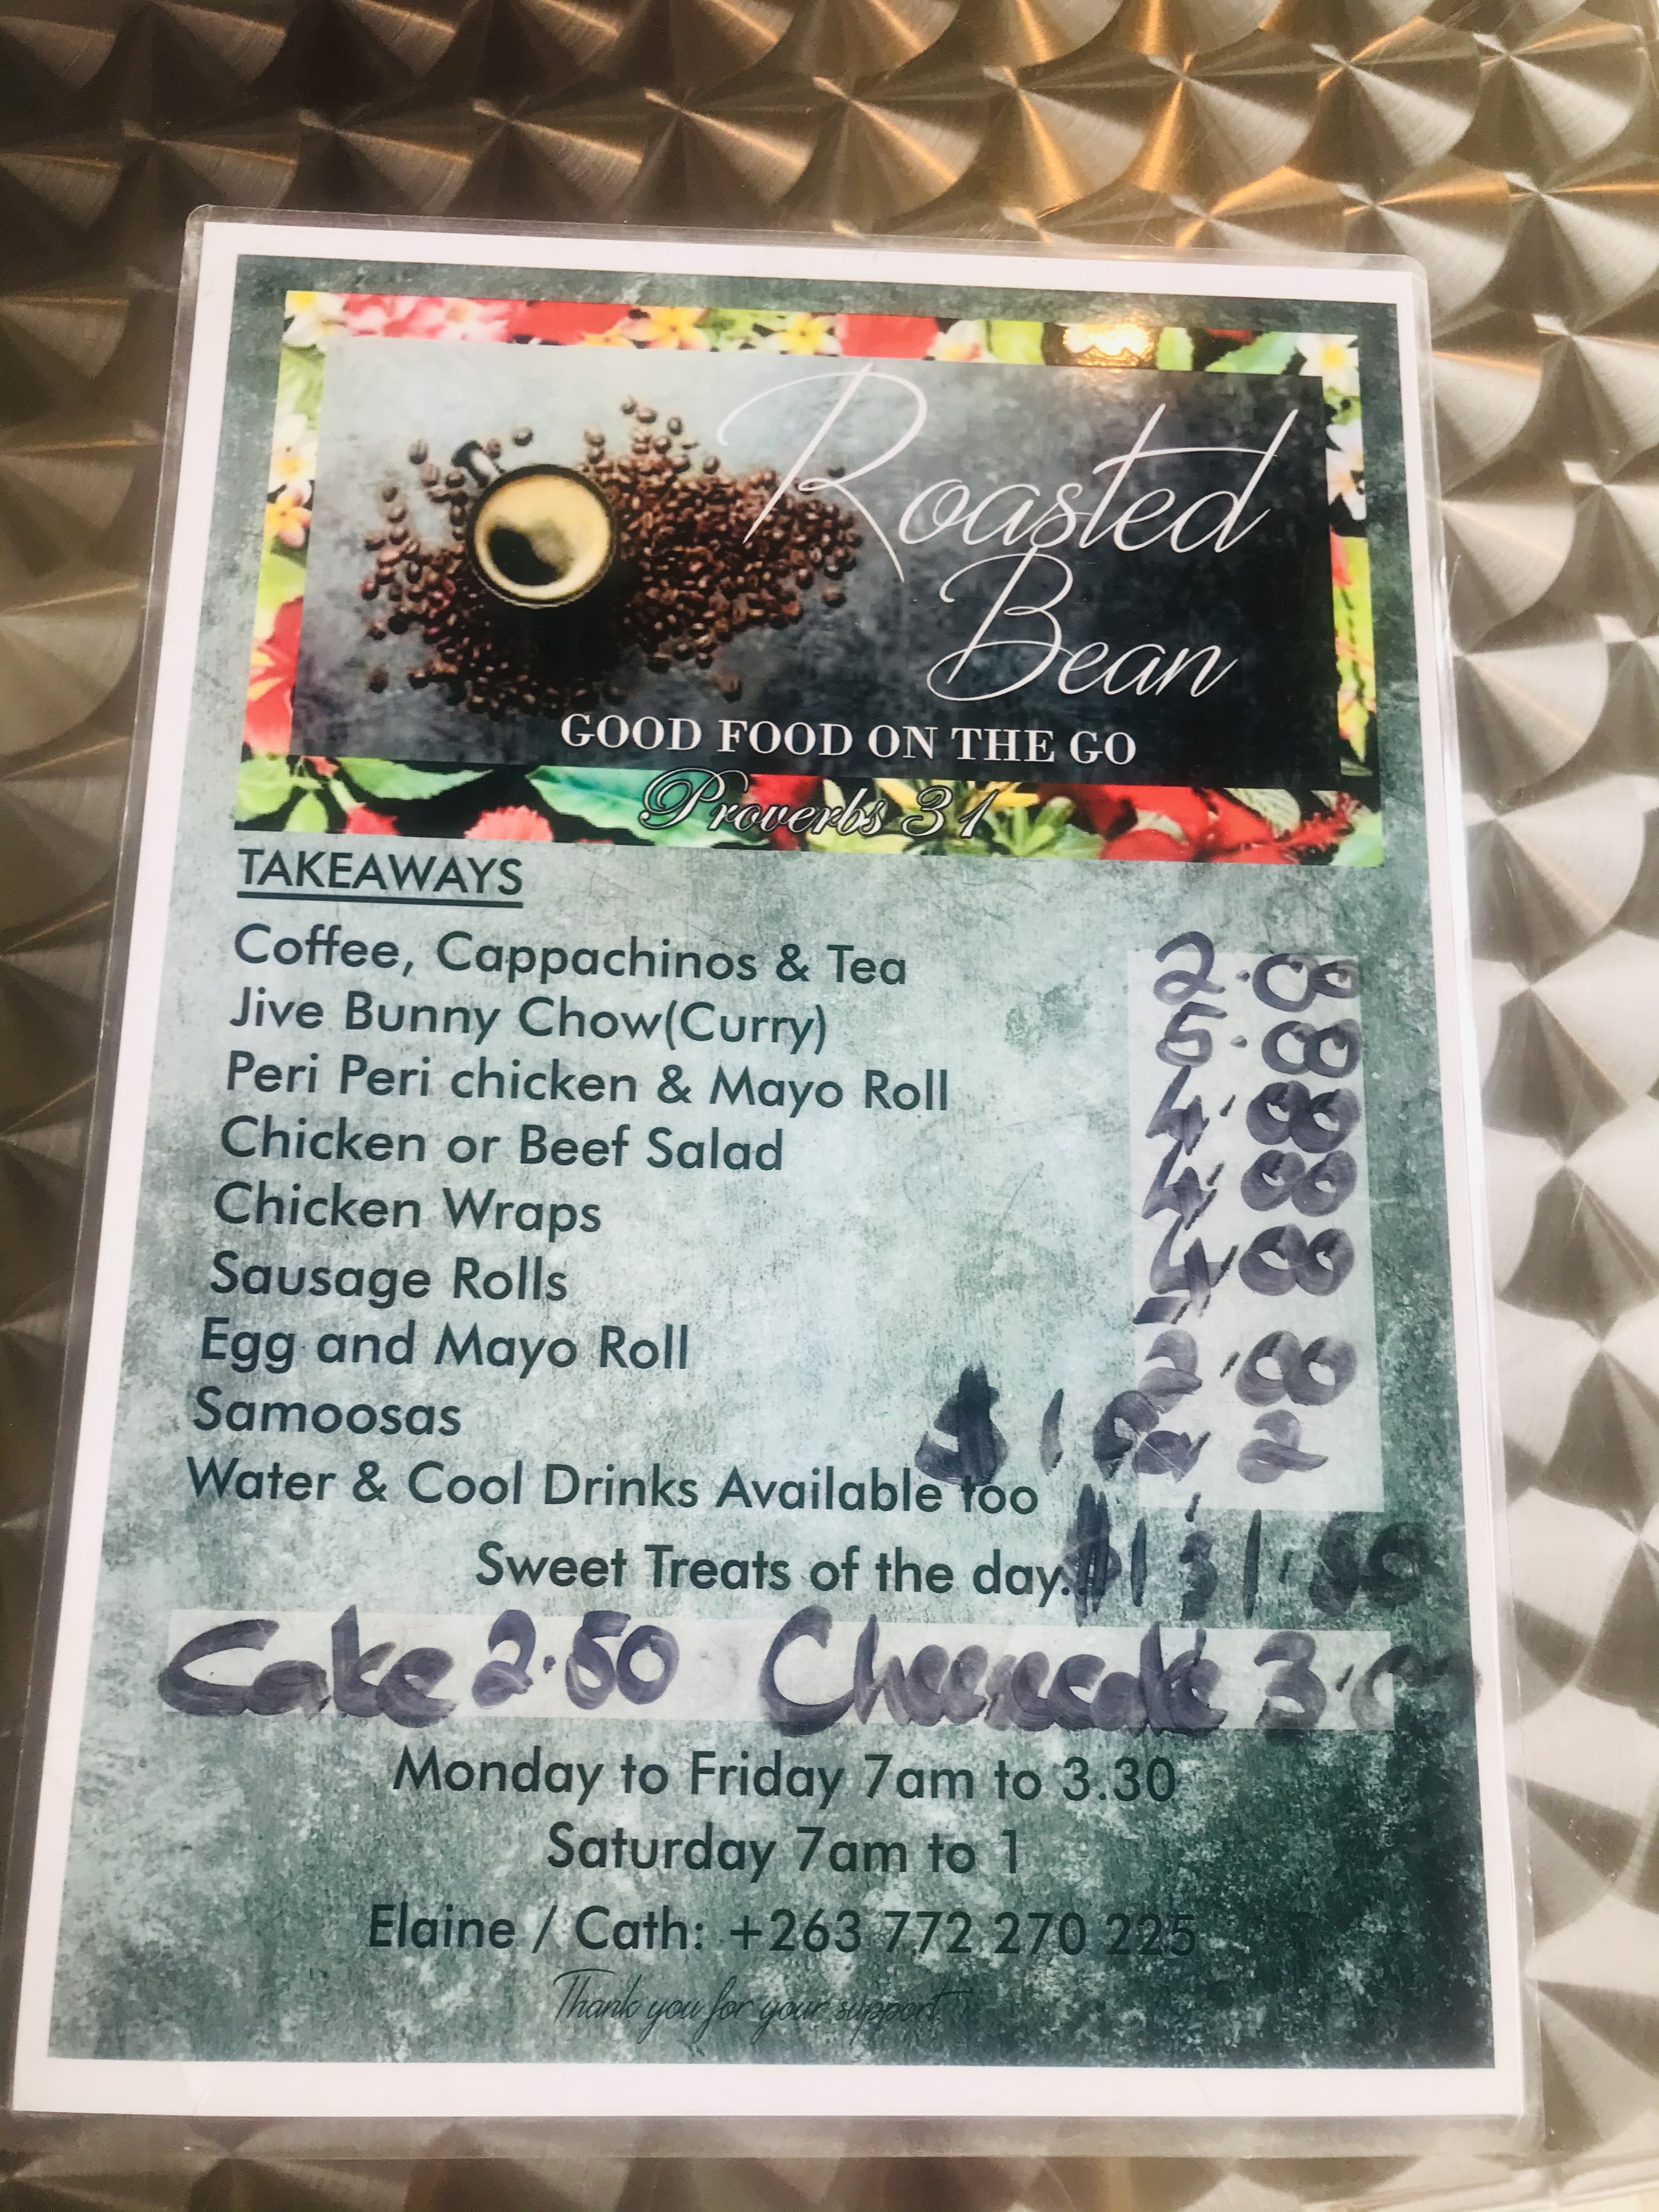 Roasted
Bean
GOOD FOOD ON THE GO
Proverbs 31
TAKEAWAYS
Coffee, Cappachinos & Tea 2.00
Jive Bunny Chow(Curry) 5.00
Peri Peri chicken & Mayo Roll 4.00
Chicken or Beef Salad 4.00
Chicken Wraps 4.00
Sausage Rolls
Egg and Mayo Roll 2.00
Samoosas
Water & Cool Drinks Available too
Sweet Treats of the day.
Cake 2.50 Cheesecake 3.0
Monday to Friday 7am to 3.30
Saturday 7am to 1
Elaine / Cath: +263 772 270 225
Thank you for your support